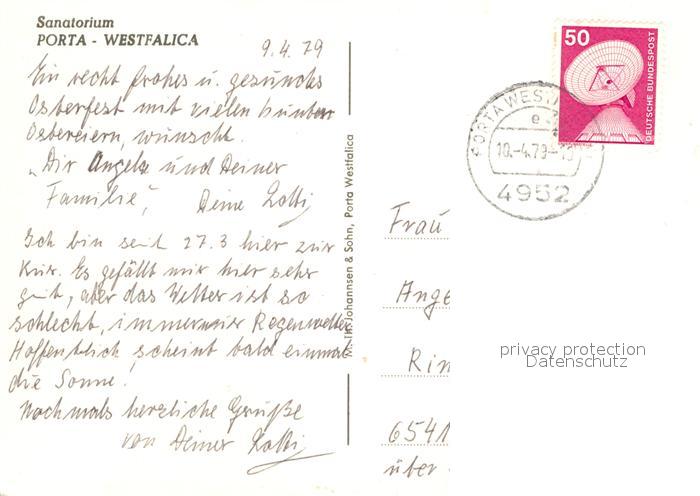 Sanatorium
PORTA - WESTFALICA
9.4.79
Ein recht frohes u. gesundes
Osterfest mit vielen bunten
Ostereiern, wünscht
„Dir Angela und Deiner
Familie", Deine Lotti
Ich bin seit 27.3 hier zur
Kur. Es gefällt mir hier sehr
gut, aber das Wetter ist so
schlecht, immer nur Regenwetter
Hoffentlich scheint bald einmal
die Sonne.
Nochmals herzliche Grüße
von Deiner Lotti
M. Th. Johannsen & Sohn, Porta Westfalica
50
DEUTSCHE BUNDESPOST
PORTA WEST
10.-4.79
4952
Frau
Ange
Rin
6541
über
privacy protection
Datenschutz